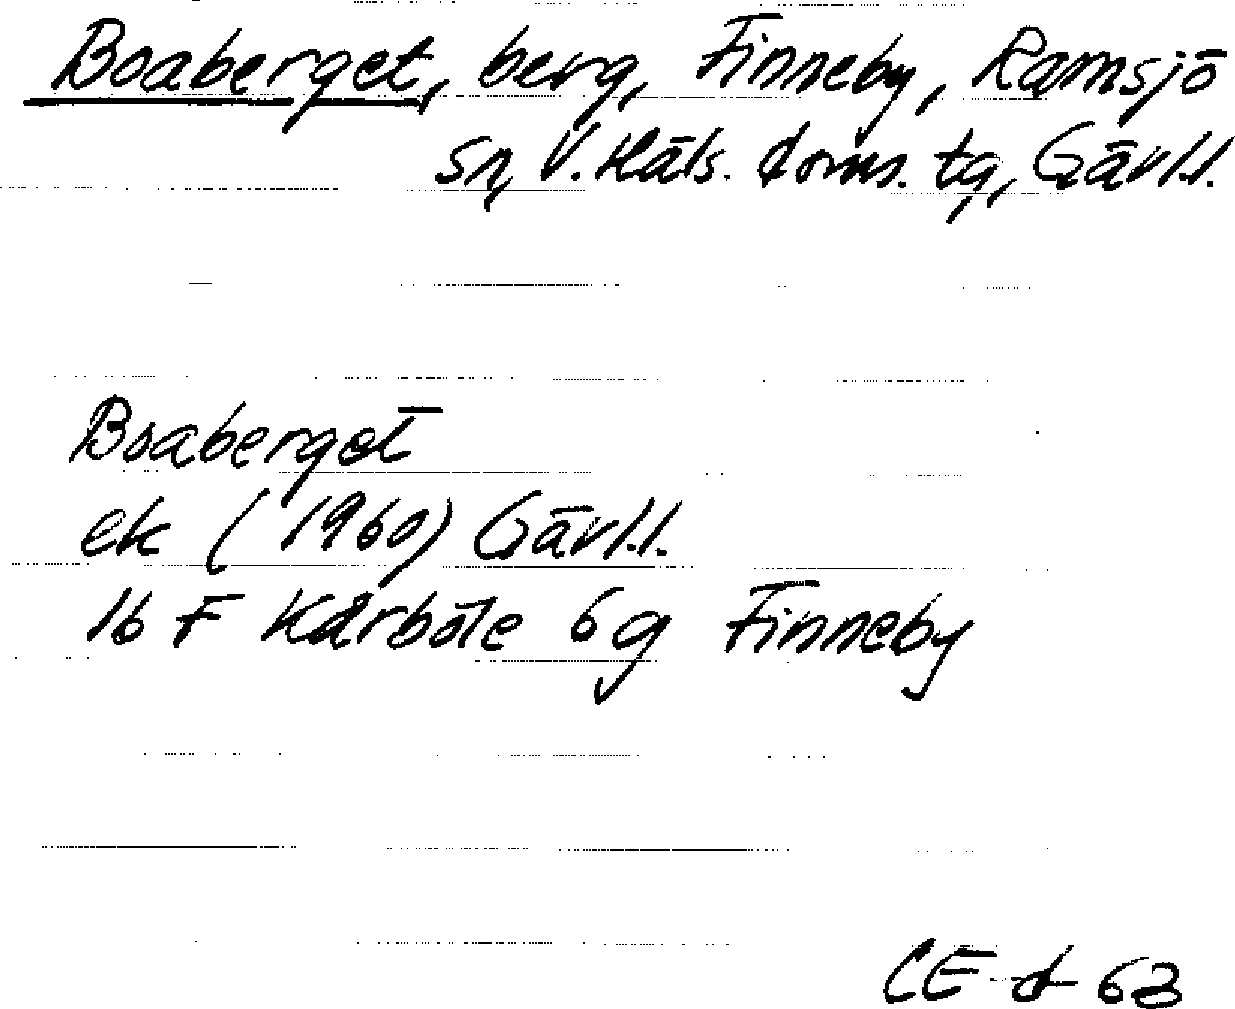 Boaberget, berg, Finneby, Ramsjö
sn, V. Häls. doms. tg, Gävl.l.
Boaberget
ek (1960) Gävl.l.
16 F Kårböle 6g Finneby
CE 63